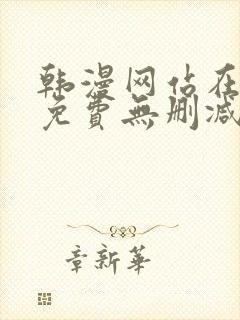 韩漫网站在
免費無删减
章新華